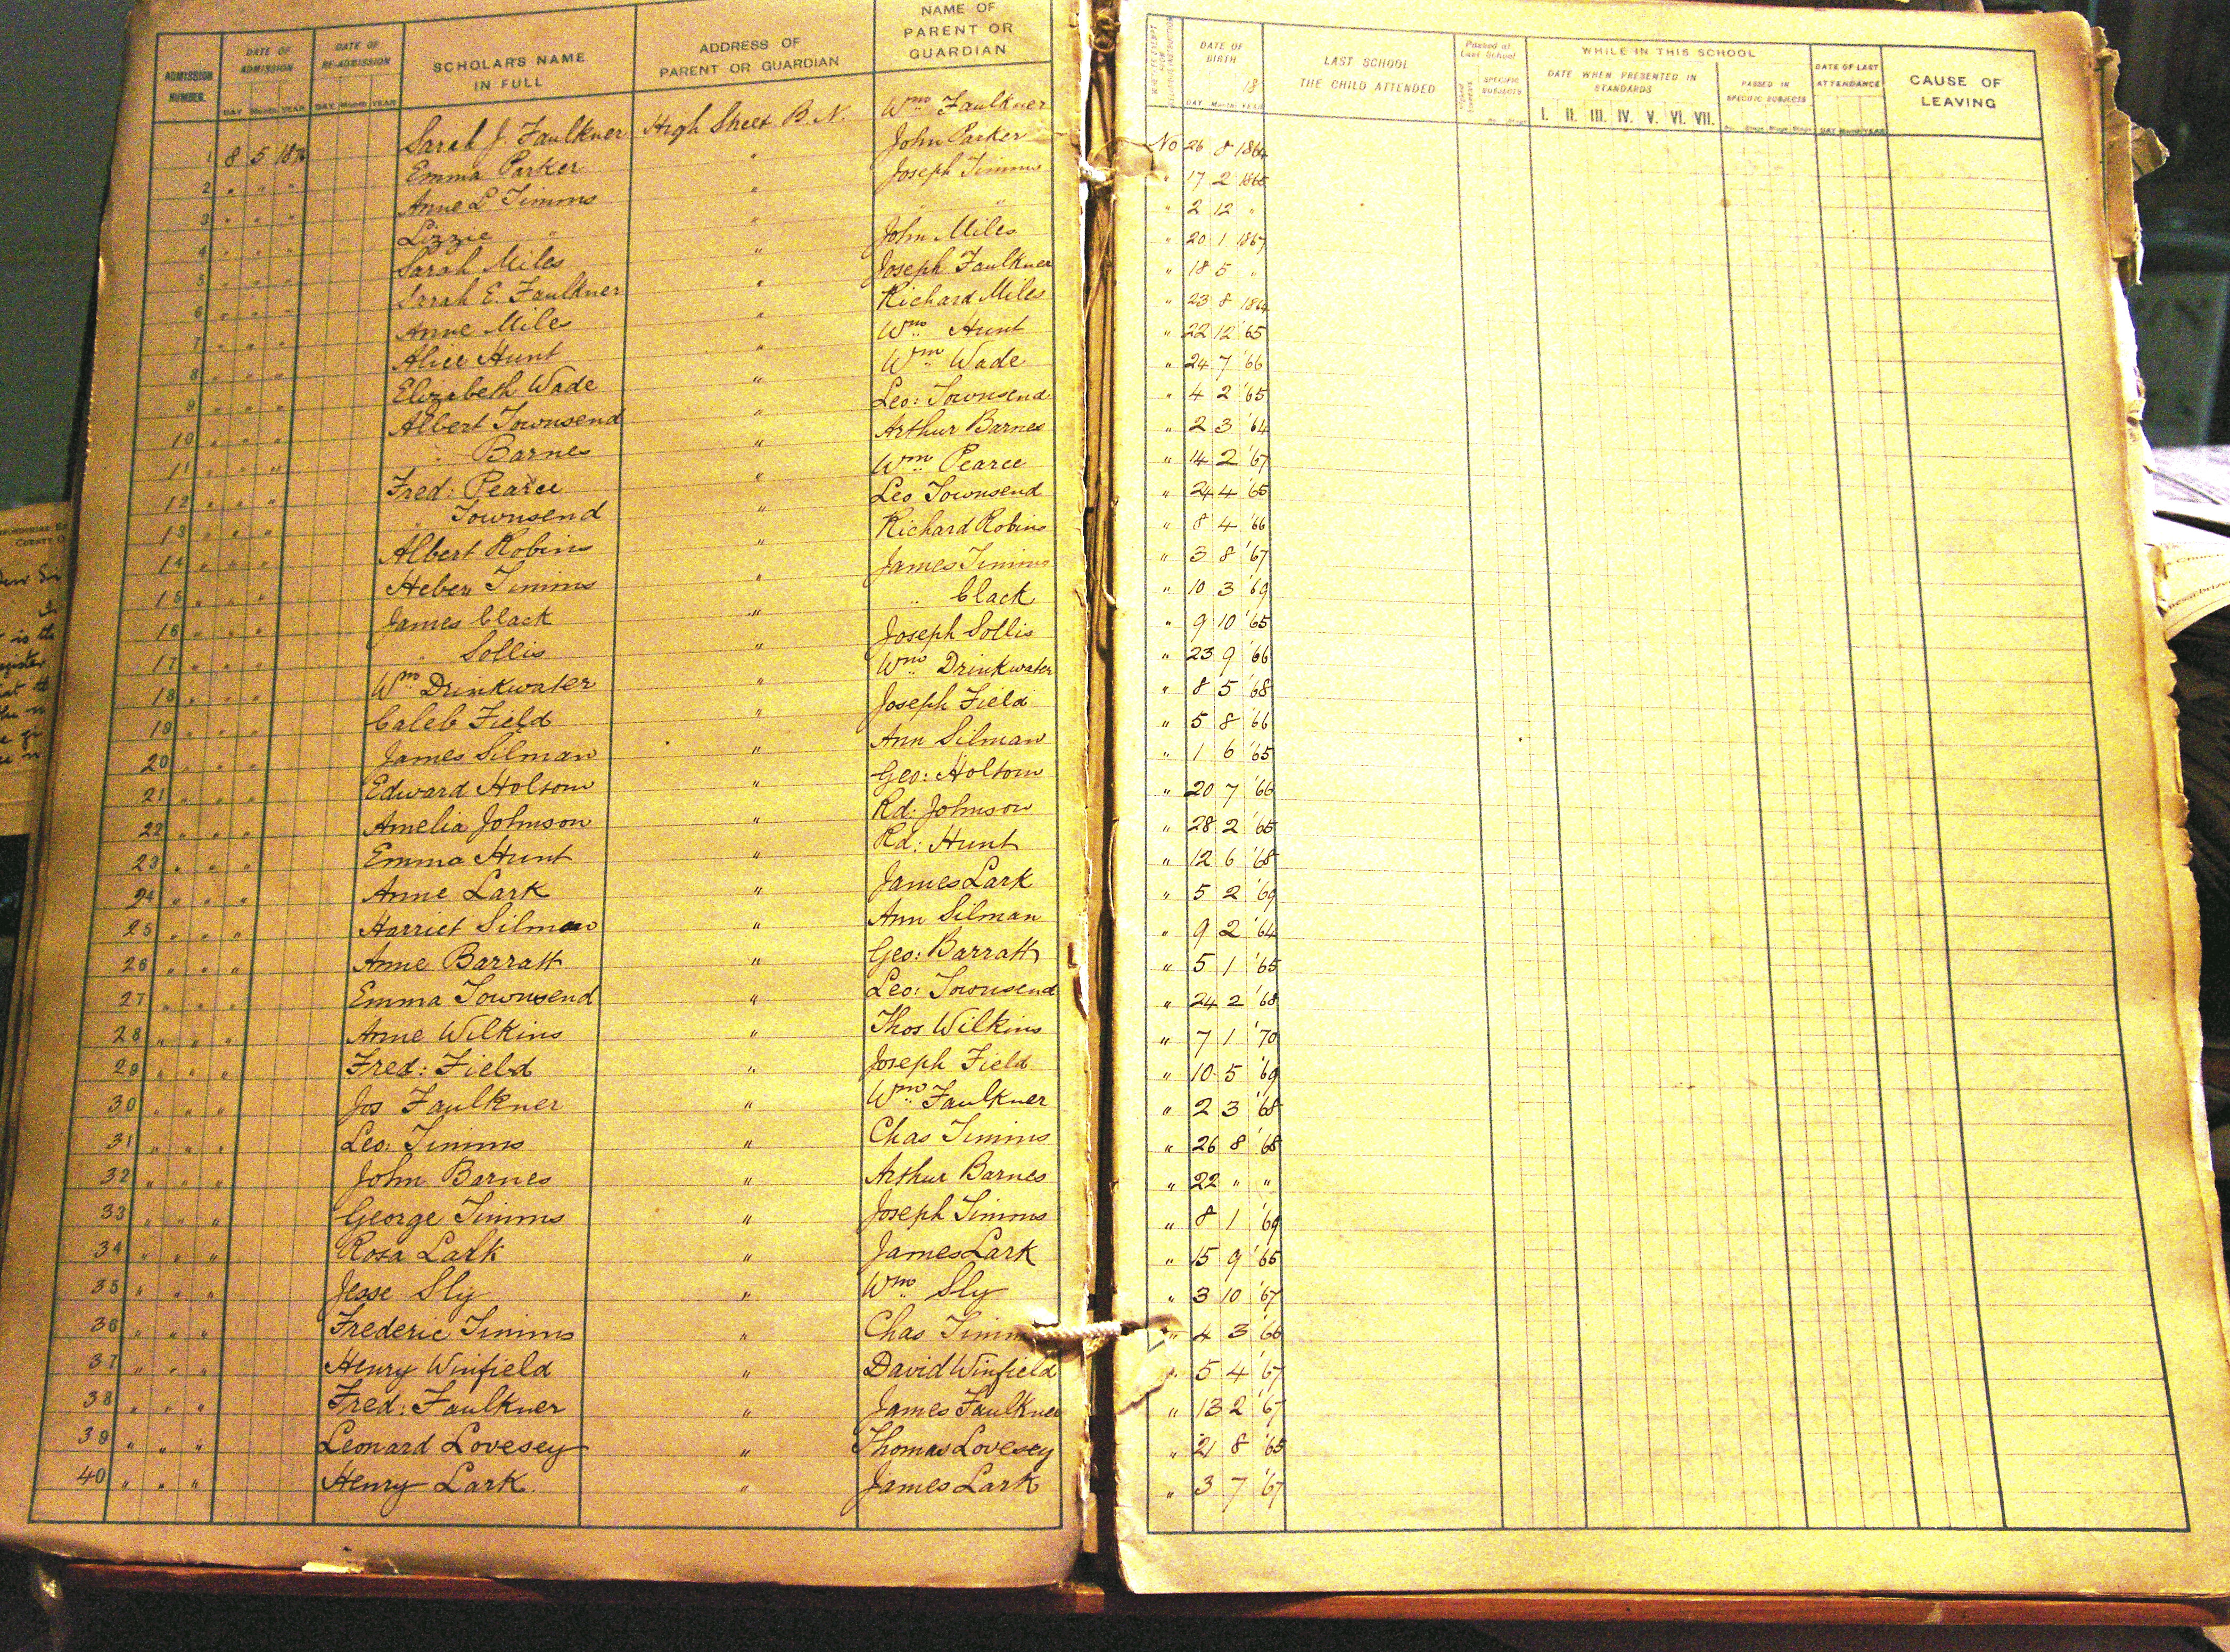 ADMISSION NUMBER. DATE OF ADMISSION DAY Month YEAR DATE OF RE-ADMISSION DAY Month YEAR SCHOLAR'S NAME IN FULL ADDRESS OF PARENT OR GUARDIAN NAME OF PARENT OR GUARDIAN
1 8 5 Sarah J. Faulkner High Street B.N. Wm Faulkner
2 " " " Emma Parker " John Parker
3 " " " Anne L Timms " Joseph Timms
4 " " " Lizzie " " " "
5 " " " Sarah Miles " John Miles
6 " " " Sarah E. Faulkner " Joseph Faulkner
7 " " " Anne Miles " Richard Miles
8 " " " Alice Hunt " Wm Hunt
9 " " " Elizabeth Wade " Wm Wade
10 " " " Albert Townsend " Leo: Townsend
11 " " " " Barnes " Arthur Barnes
12 " " " Fred: Pearce " Wm Pearce
13 " " " " Townsend " Leo Townsend
14 " " " Albert Robins " Richard Robins
15 " " " Heber Timms " James Timms
16 " " " James Clack " " Clack
17 " " " " Sollis " Joseph Sollis
18 " " " Wm Drinkwater " Wm Drinkwater
19 " " " Caleb Field " Joseph Field
20 " " " James Silman " Ann Silman
21 " " " Edward Holtom " Geo: Holtom
22 " " " Amelia Johnson " Rd: Johnson
23 " " " Emma Hunt " Rd: Hunt
24 " " " Anne Lark " James Lark
25 " " " Harriet Silman " Ann Silman
26 " " " Anne Barratt " Geo: Barratt
27 " " " Emma Townsend " Leo: Townsend
28 " " " Anne Wilkins " Thos Wilkins
29 " " " Fred: Field " Joseph Field
30 " " " Jos Faulkner " Wm Faulkner
31 " " " Leo. Timms " Chas Timms
32 " " " John Barnes " Arthur Barnes
33 " " " George Timms " Joseph Timms
34 " " " Rosa Lark " James Lark
35 " " " Jesse Sly " Wm Sly
36 " " " Frederic Timms " Chas Timms
37 " " " Henry Winfield " David Winfield
38 " " " Fred: Faulkner " James Faulkner
39 " " " Leonard Lovesey " Thomas Lovesey
40 " " " Henry Lark. " James Lark
DATE OF BIRTH 18 DAY Month YEAR LAST SCHOOL THE CHILD ATTENDED Passed at Last School SPECIFIC SUBJECTS WHILE IN THIS SCHOOL DATE WHEN PRESENTED IN STANDARDS I. II. III. IV. V. VI. VII. PASSED IN SPECIFIC SUBJECTS DATE OF LAST ATTENDANCE DAY Month YEAR CAUSE OF LEAVING
No 26 8 1864
" 17 2 1865
" 2 12 "
" 20 1 1867
" 18 5 "
" 23 8 1864
" 22 12 '65
" 24 7 '66
" 4 2 '65
" 2 3 '64
" 14 2 '67
" 24 4 '65
" 8 4 '66
" 3 8 '67
" 10 3 '69
" 9 10 '65
" 23 9 '66
" 8 5 '68
" 5 8 '66
" 1 6 '65
" 20 7 '66
" 28 2 '65
" 12 6 '68
" 5 2 '69
" 9 2 '64
" 5 1 '65
" 24 2 '68
" 7 1 '70
" 10 5 '69
" 2 3 '68
" 26 8 '68
" 22 " "
" 8 1 '69
" 15 9 '65
" 3 10 '67
" 4 3 '66
" 5 4 '67
" 13 2 '67
" 21 8 '65
" 3 7 '67